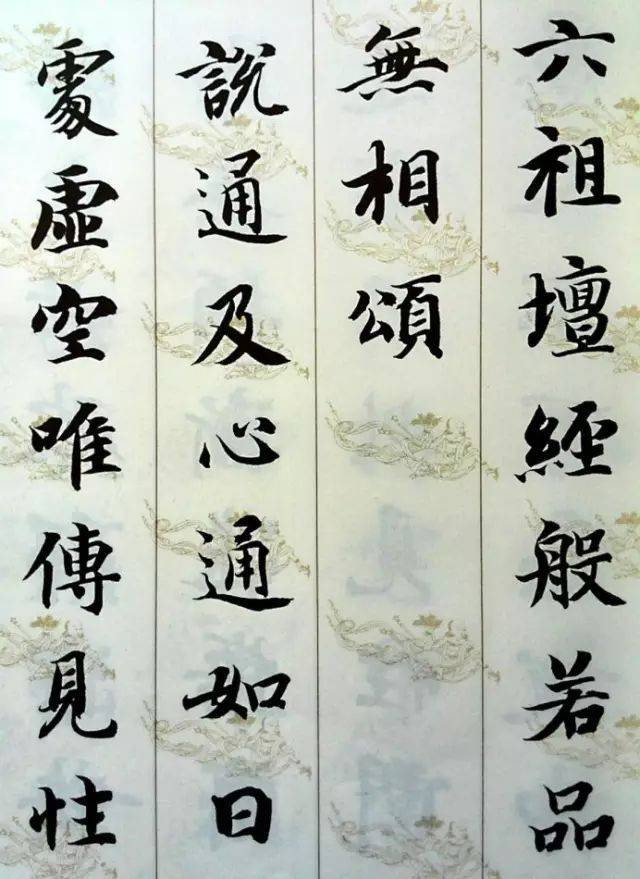 六祖壇經般若品
無相頌
說通及心通如日
處虛空唯傳見性